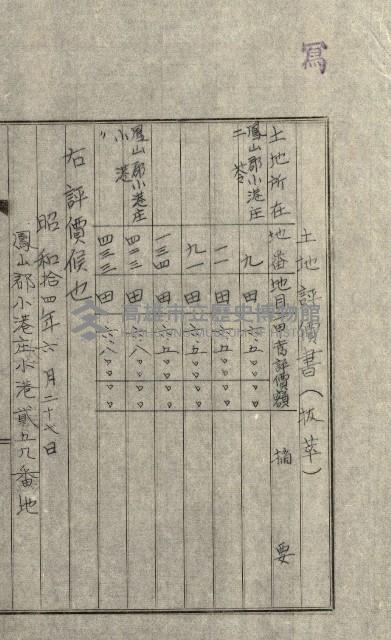 寫
土地評價書（抜萃）
土地所在地番地目甲當評價額 摘要
鳳山郡小港庄二苓 九 田 六.五〇〇〇〇
一一 田 六.五〇〇〇〇
九一 田 六.五〇〇〇〇
一三四 田 六.五〇〇〇〇
鳳山郡小港庄小港 四三二 田 六.八〇〇〇〇
〃 四三三 田 六.八〇〇〇〇
右評價候也
昭和拾四年六月二十七日
鳳山郡小港庄小港貳五九番地
高雄市立歷史博物館
KAOHSIUNG MUSEUM OF HISTORY